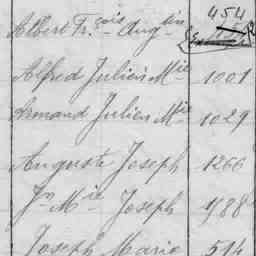 454
Albert Fr.çois Aug.tin
Alfred Julien Mie 1001
Armand Julien Mie 1029
Auguste Joseph 1266
Jn Mie Joseph 988
Joseph Marie 514